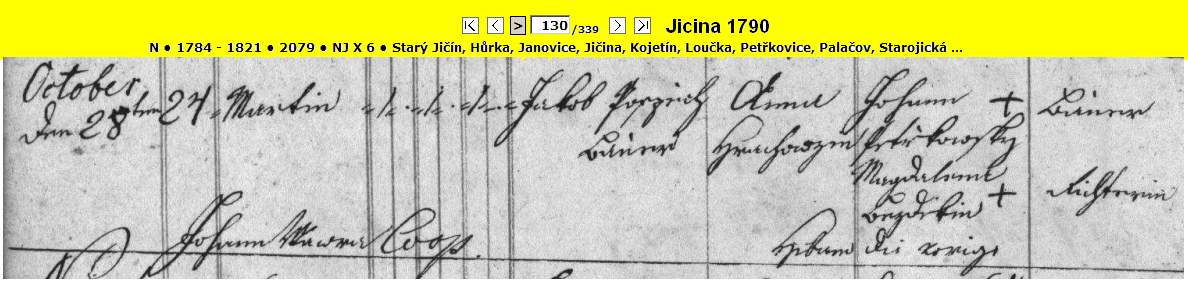 130 /339 Jicina 1790
N ● 1784 - 1821 ● 2079 ● NJ X 6 ● Starý Jičín, Hůrka, Janovice, Jičina, Kojetín, Loučka, Petřkovice, Palačov, Starojická ...
October
den 28ten 24 Martin Jakob Anna Johann + Bauer
Bauer Petřkowsky
Magdalena + Richterin
Johann Wawra Coop. Hebam die vorige